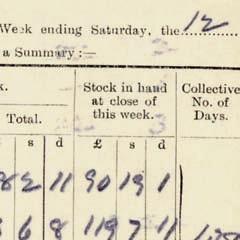 Week ending Saturday, the 12
a Summary :—
k. Stock in hand Collective
at close of No. of
Total. this week. Days.
s d £ s d
82 11 90 19 1
6 8 119 7 11